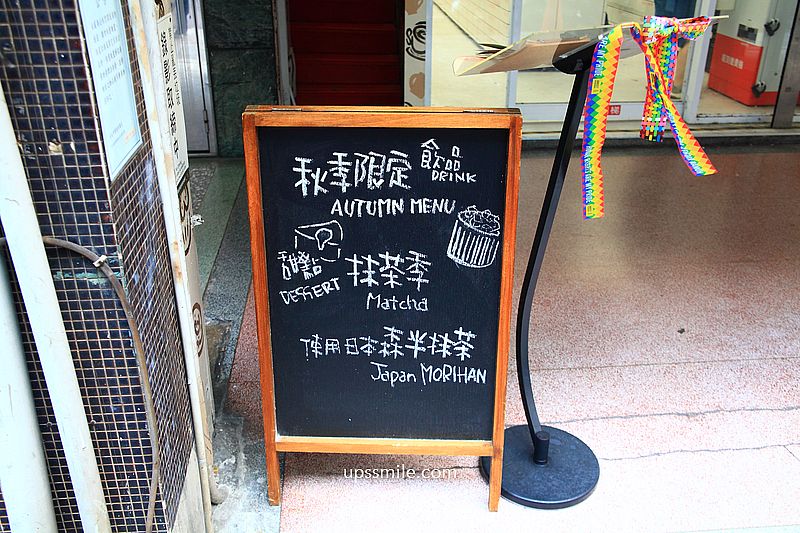 秋季限定
食品
DRINK
AUTUMN MENU
甜點
DESSERT
抹茶季
Matcha
使用日本森半抹茶
Japan MORIHAN
upssmile.com